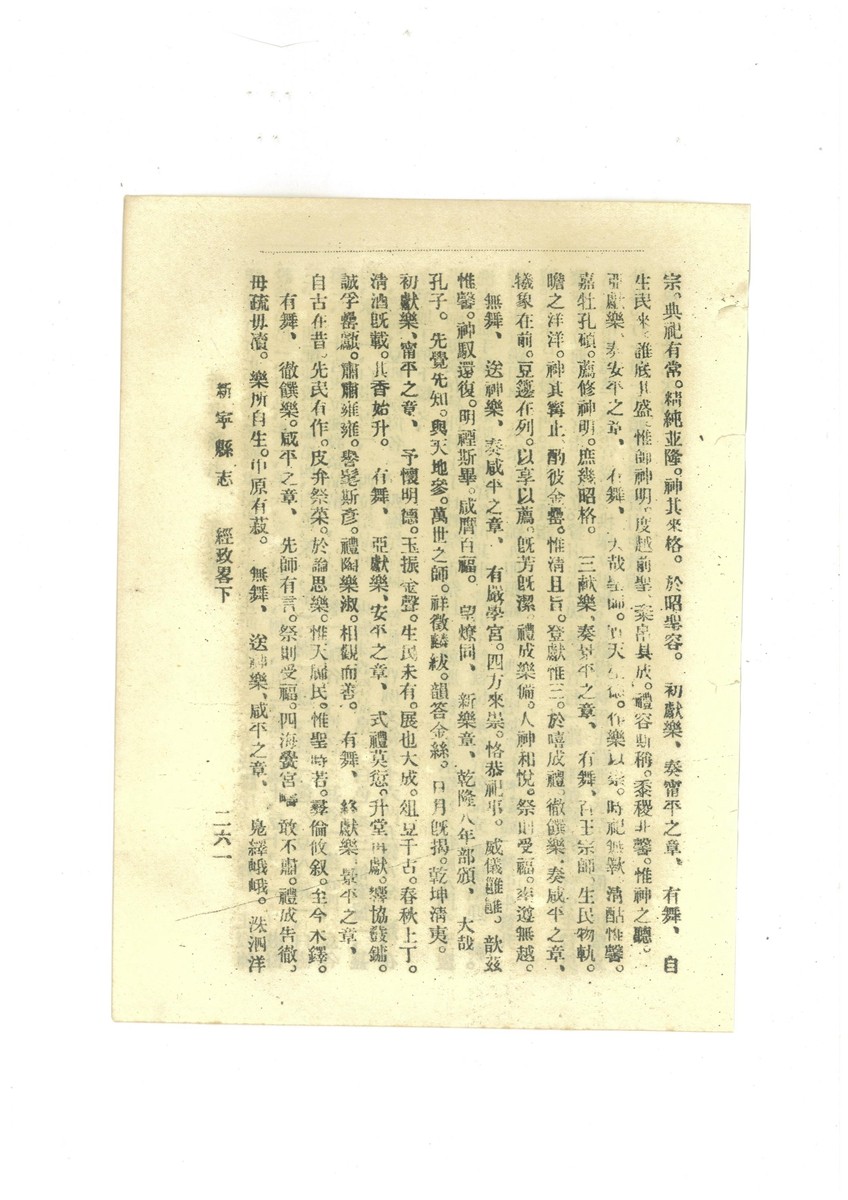 宗。典祀有常。精純並隆。神其來格。於昭聖容。　初獻樂、奏甯平之章、　有舞、　自
生民來、誰底其盛。惟師神明、度越前聖、粢帛具成。禮容斯稱。黍稷非馨。惟神之聽。
亞獻樂、奏安平之章、　有舞、　大哉聖師。天生德。作樂以崇。時祀無斁。清酤惟馨。
嘉牡孔碩。薦修神明。庶幾昭格。　三献樂、奏景平之章、　有舞、百王宗師、生民物軌。
瞻之洋洋。神其甯止、酌彼金罍。惟清且旨。登獻惟三。於嘻成禮。徹饌樂、奏咸平之章、
犧象在前。豆籩在列。以享以薦。旣芳旣潔　禮成樂備。人神和悅。祭則受福。率遵無越。
無舞、　送神樂、奏咸平之章、　有嚴學宮。四方來崇。恪恭祀事。威儀雝雝。歆茲
惟馨。神馭還復。明禋斯畢。咸膺百福。　望燎同、　新樂章、乾隆八年部頒、　大哉
孔子。　先覺先知。與天地參。萬世之師。祥徵麟紱。韻答金絲。日月旣揭。乾坤清夷。
初獻樂、甯平之章、　予懷明德。玉振金聲。生民未有。展也大成。俎豆千古。春秋上丁。
清酒旣載。其香始升。　有舞、　亞獻樂、安平之章、　式禮莫愆。升堂再獻。響協鼖鏞。
誠孚罍甗。肅肅雍雍。譽髦斯彥。禮陶樂淑。相觀而善。　有舞、　終獻樂、景平之章、
自古在昔。先民有作。皮弁祭菜。於論思樂。惟天牖民。惟聖時若。彝倫攸叙。至今木鐸。
有舞、　徹饌樂。咸平之章、　先師有言。祭則受福。四海黌宮　疇敢不肅。禮成告徹。
毋疏毋瀆。樂所自生。中原有菽。　無舞、　送神樂、咸平之章、　鳧繹峨峨。洙泗洋
新寧縣志　經政畧下　二六一